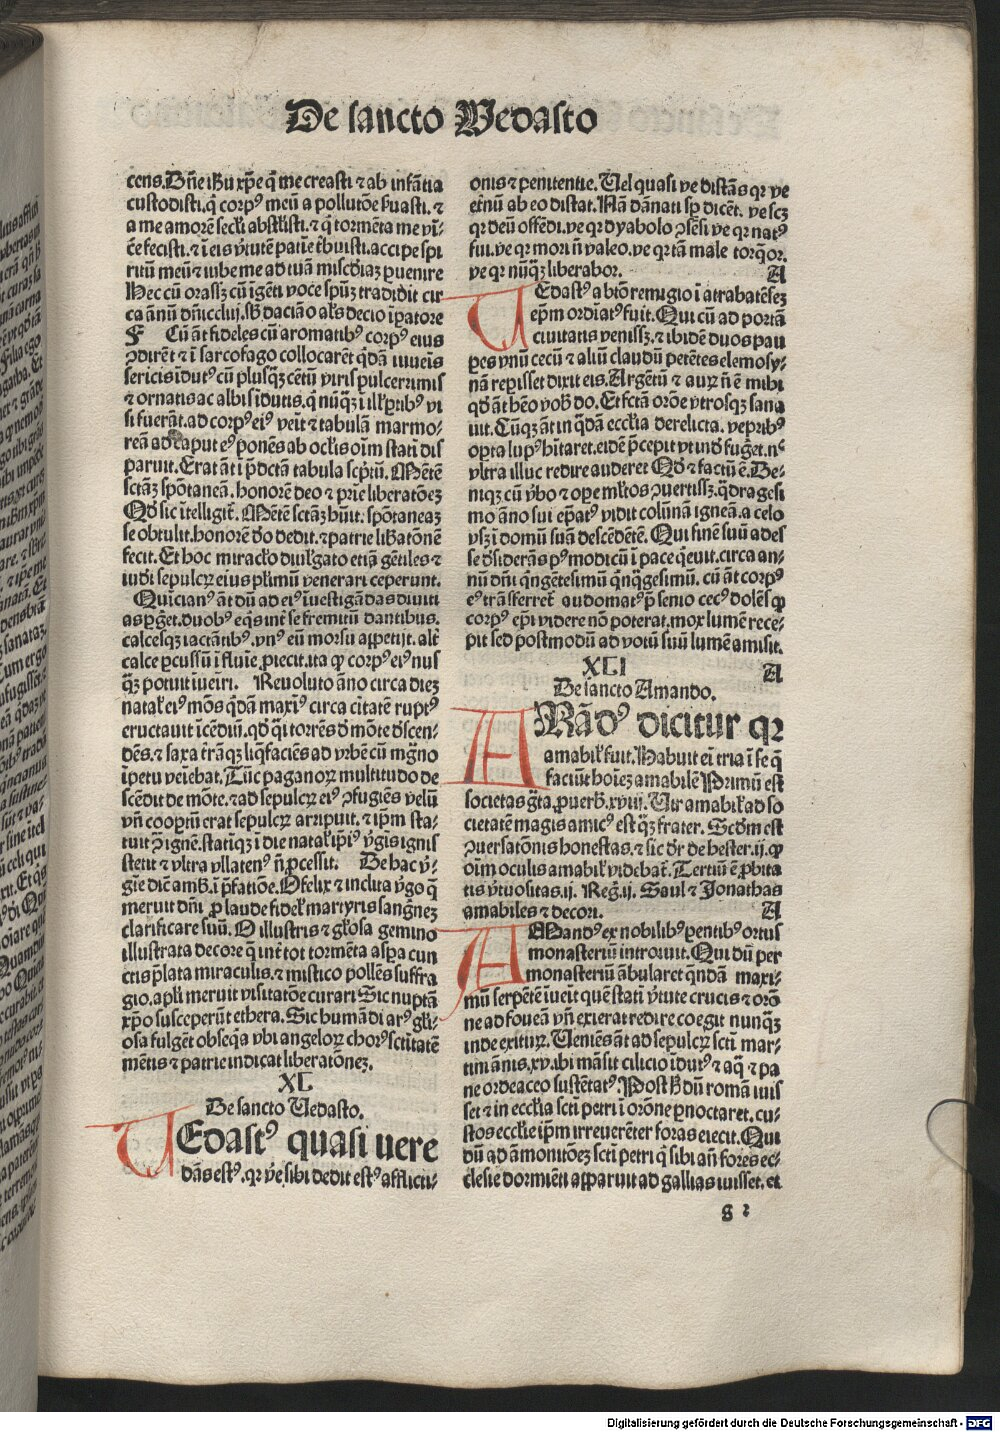 De sancto Vedasto
cens. Dñe iħu xp̃e q̃ me creasti ⁊ ab infãtia
custodisti. q̃ corpꝰ meũ a pollutõe ẜuasti. ⁊
a me amorẽ secl̃i abstl̃isti. ⁊ q̃ tormẽta me vĩ-
cẽ fecisti. ⁊ ĩ eis v̾tutẽ patiẽ tͥbuisti. accipe spi
ritũ meũ ⁊ iube me ad tuã miscd̾iaʒ ꝑuenire
Hec cũ orassʒ cũ ĩgẽti voce spũʒ tradidit cir
ca ãnũ dñi ccluj. sb̾ dacião al̓s decio ĩꝑatore
F Cũ ãt fideles cũ aromatibꝰ corpꝰ eius
ↄdirẽt ⁊ ĩ sarcofago collocarẽt q̃dã iuueĩs
sericis ĩdutꝰ cũ plusq̃ʒ cẽtũ viris pulcerrimis
⁊ ornatis ac albis ĩdutis. q̃ nũq̃ʒ ĩ ill̓ ꝑtibꝰ vi
si fuerãt. ad corpꝰ eiꝰ veĩt ⁊ tabulã marmo-
reã ad caput eꝰ ponẽs ab ocl̓is oĩm statĩ dis
paruit. Erat ãt ĩ p̃dcã tabula sc̾ptũ. Mẽtẽ
sctãʒ spõtaneã. honorẽ deo ⁊ pr̃ie liberatõeʒ
Qd̾ sic ĩtelligit̾. Mẽtẽ sctãʒ hũit. spõtaneaʒ
se obtulit. honorẽ d̾o dedit. ⁊ patrie lib̾atõnẽ
fecit. Et hoc miracl̓o diuĩgato etiã gẽtiles ⁊
iudĩ sepulcrꝝ eius pl̓imũ venerari ceperunt.
Quĩcianꝰ ãt dũ ad eiꝰ ĩuestigãdas diuiti
as ꝑg̾et. duobꝰ eqͥs int̾ se fremitũ dantibus.
calcesqʒ iactãtibꝰ. vnꝰ eũ morsu appetijt. alt̾
calce ꝑcussũ ĩ fluuĩe ꝓiecit. ita ꝙ corpꝰ eiꝰ nus
q̃ʒ potuit ĩueĩri. Reuoluto ãno circa dieʒ
natal̓ eiꝰ mõs q̃dã maxĩꝰ circa citatẽ ruptꝰ
eructauit ĩcẽdiũ. qd̾ qͥ torrẽs d̾ mõte d̾scen-
dẽs. ⁊ saxa ⁊ t̾rãqʒ liq̃faciẽs ad vrbẽ cũ mg̃no
ĩpetu veĩebat. Tũc paganoꝝ multitudo de
scẽdit de mõte. ⁊ ad sepulcrꝝ eiꝰ ↄfugiẽs velũ
vñ cooptũ erat sepulcrꝝ arripuit. ⁊ ip̃m sta-
tuit ↄ̃ ignẽ. statĩqʒ ĩ die natal̓ ip̃iꝰ v̾gĩs ignis
stetit ⁊ vltra vllatenꝰ ñ ꝓcessit. De hac v̾-
gĩe diẽ amb̾. ĩ p̃fatiõe. O felix ⁊ inclita v̾go q̃
meruit dñi ꝓ laude fidel̓ martyris sang̾neʒ
clarificare suũ. O illustris ⁊ gl̓osa gemino
illustrata decore q̃ int̾ tot tormẽta aspa cun
ctis p̃lata miraculis. ⁊ mistico pollẽs suffra
gio. apl̓i meruit visitatõe curari Sic nuptã
xp̃o susceperũt ethera. Sic humãdi arꝰ gl̓i-
osa fulgẽt obseq̃a vbi angeloꝝ chorꝰ sctĩtatẽ
mẽtis ⁊ patrie indicat liberatõneʒ.
XL
De sancto Uedasto.
UEdastꝰ quasi uere
dãs estꝰ. qꝛ ve̾ sibi dedit estꝰ afflicti-
onis ⁊ penitentie. Uel quasi ve distãs qꝛ ve
et̾nũ ab eo distat. Nã dãnati sp̃ dicẽt. ve scʒ
qꝛ deũ offẽdi. ve qꝛ dyabolo ↄ̃sẽsi ve qꝛ natꝰ
fui. ve qꝛ mori ñ valeo. ve qꝛ tã male torq̃or.
ve qꝛ nũq̃ʒ liberabor. A
UEdastꝰ a btõ remigio ĩ atrabatẽseʒ
ep̃m ordiatꝰ fuit. Qui cũ ad portã
ciuitatis venissʒ. ⁊ ibidẽ duos pau
pes vnũ cecũ ⁊ aliũ claudũ petẽtes elemosy-
nã repisset dixit eis. Argẽtũ ⁊ auꝝ ñ ẽ mihi
qd̾ ãt hẽo vob̾ do. Et fctã orõe vtrosqʒ sana
uit. Cũqʒ ãt in q̃dã eccl̓ia derelicta. vepribꝰ
opta lupꝰ hĩtaret. eidẽ p̃cepit vt inde fug̾et. nͨ
vltra illuc redire auderet Qd̾ ⁊ factũ ẽ. De-
niqʒ cũ v̾bo ⁊ ope ml̓tos ↄuertissʒ. q̃dragesi
mo ãno sui ep̃atꝰ vidit colũnã igneã. a celo
vsʒ ĩ domũ suã descẽdẽtẽ. Qui finẽ suũ ades
se d̾siderãs pꝰ modicũ ĩ pace q̃euit. circa an-
nũ dñi q̃ngẽtesimũ q̃nq̃gesimũ. cũ ãt corpꝰ
eꝰ trãsferret̾ audomatꝰ p̃ senio cecꝰ dolẽs ꝙ
corpꝰ ep̃i videre nõ poterat. mox lumẽ rece-
pit sed postmodũ ad votũ suũ lumẽ amisit.
XLI A
De sancto Amando.
AMãdꝰ dicitur qꝛ
amabil̓ fuit. Habuit eĩ tria ĩ se q̃
faciũt hoĩeʒ amabilẽ Primũ est
societas g̃ta. ꝓuerb̾. xviij. Uir amabil̓ ad so
cietatẽ magis amicꝰ est q̃ʒ frater. Scd̾m est
ↄuersatõnis honestas. ⁊ sic dr̃ de hester. ij. ꝙ
oĩm oculis amabil̓ videbat̾. Tertiũ ẽ ꝓbita
tis v̾tuositas. ij. Reg̾. ij. Saul ⁊ Jonathas
amabiles ⁊ decori. A
AMandꝰ ex nobilibꝰ pentibꝰ ortus
monasteriũ introiuit. Qui dũ per
monasteriũ ãbularet q̃ndã maxi-
mũ serpẽtẽ ĩueĩt quẽ statĩ v̾tute crucis ⁊ orõ
ne ad foueã vñ exierat redire coegit nunq̃ʒ
inde exiturꝝ. Ueniẽs ãt ad sepulcrꝝ scti mar-
tini ãnis. xv. ibi mãsit cilicio ĩdutꝰ ⁊ aq̃ ⁊ pa
ne ordeaceo sustẽtatꝰ. Post h̾ dũ romã iuis
set ⁊ in eccl̓ia sctĩ petri ĩ orõne ꝑnoctaret. cu-
stos eccl̓ie ip̃m irreuerẽter foras eiecit. Qui
dũ ad ãmonitõeʒ scti petri q̃ sibi añ fores ec-
clesie dormiẽti apparuit ad gallias iuisset. et
g 2
Digitalisierung gefördert durch die Deutsche Forschungsgemeinschaft - DFG